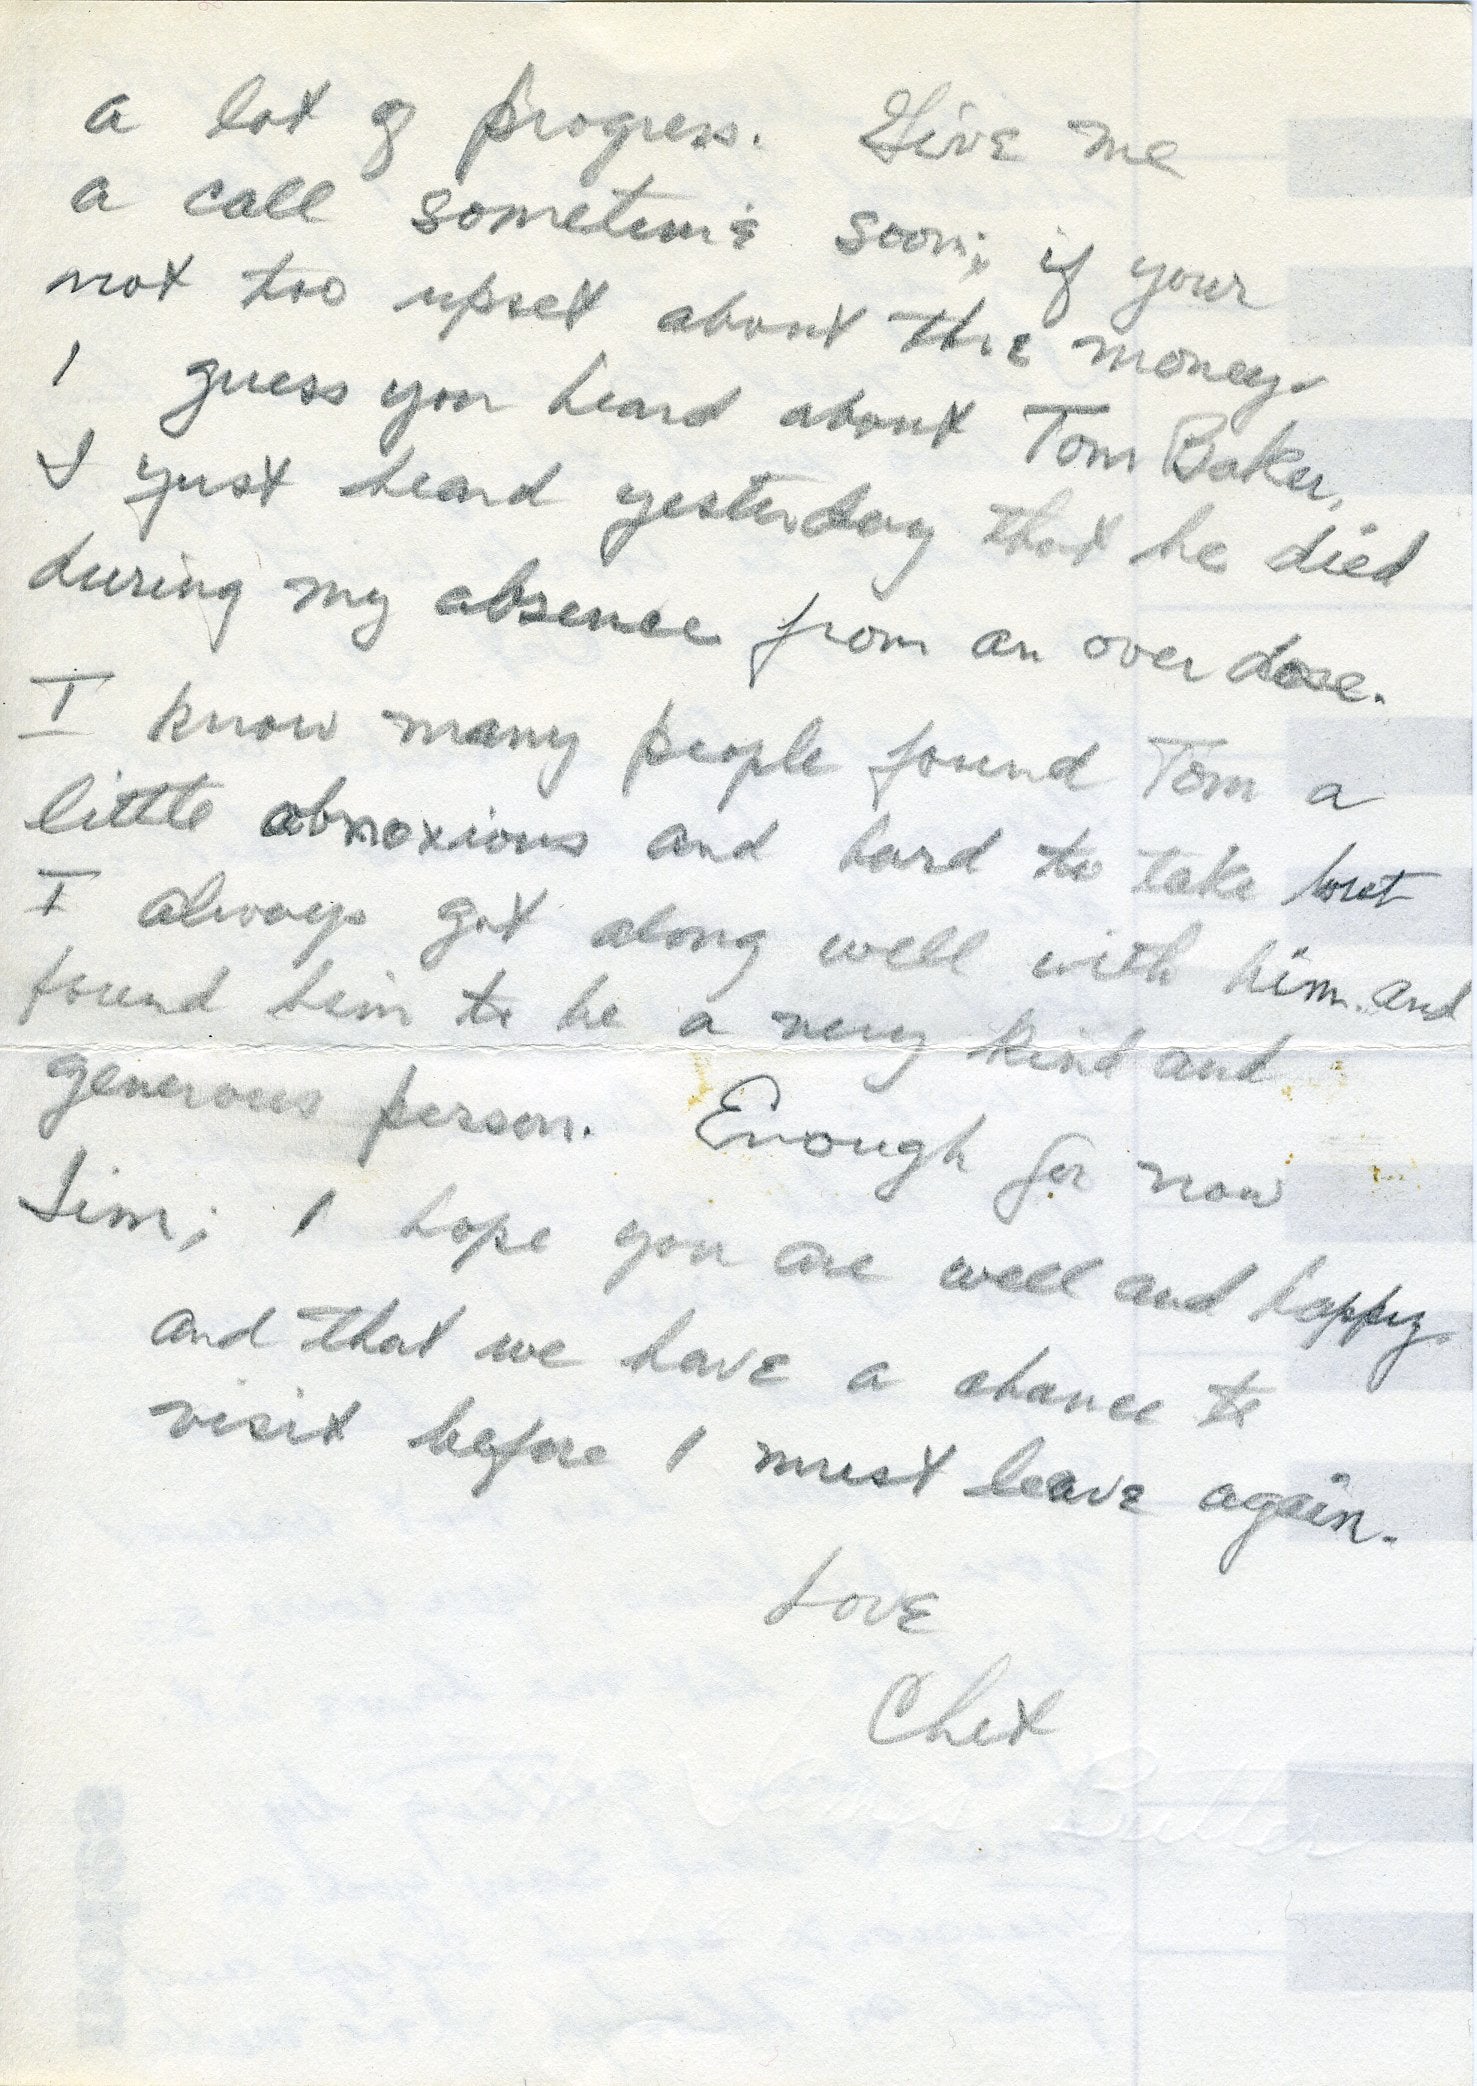 a lot of progress. Give me
a call sometime soon; if your
not too upset about the money.
I guess you heard about Tom Baker,
I just heard yesterday that he died
during my absence from an over dose.
I know many people found Tom a
little obnoxious and hard to take but
I always got along well with him. and
found him to be a very kind and
generous person. Enough for now
Jim; I hope you are well and happy.
and that we have a chance to
visit before I must leave again.
Love
Chet